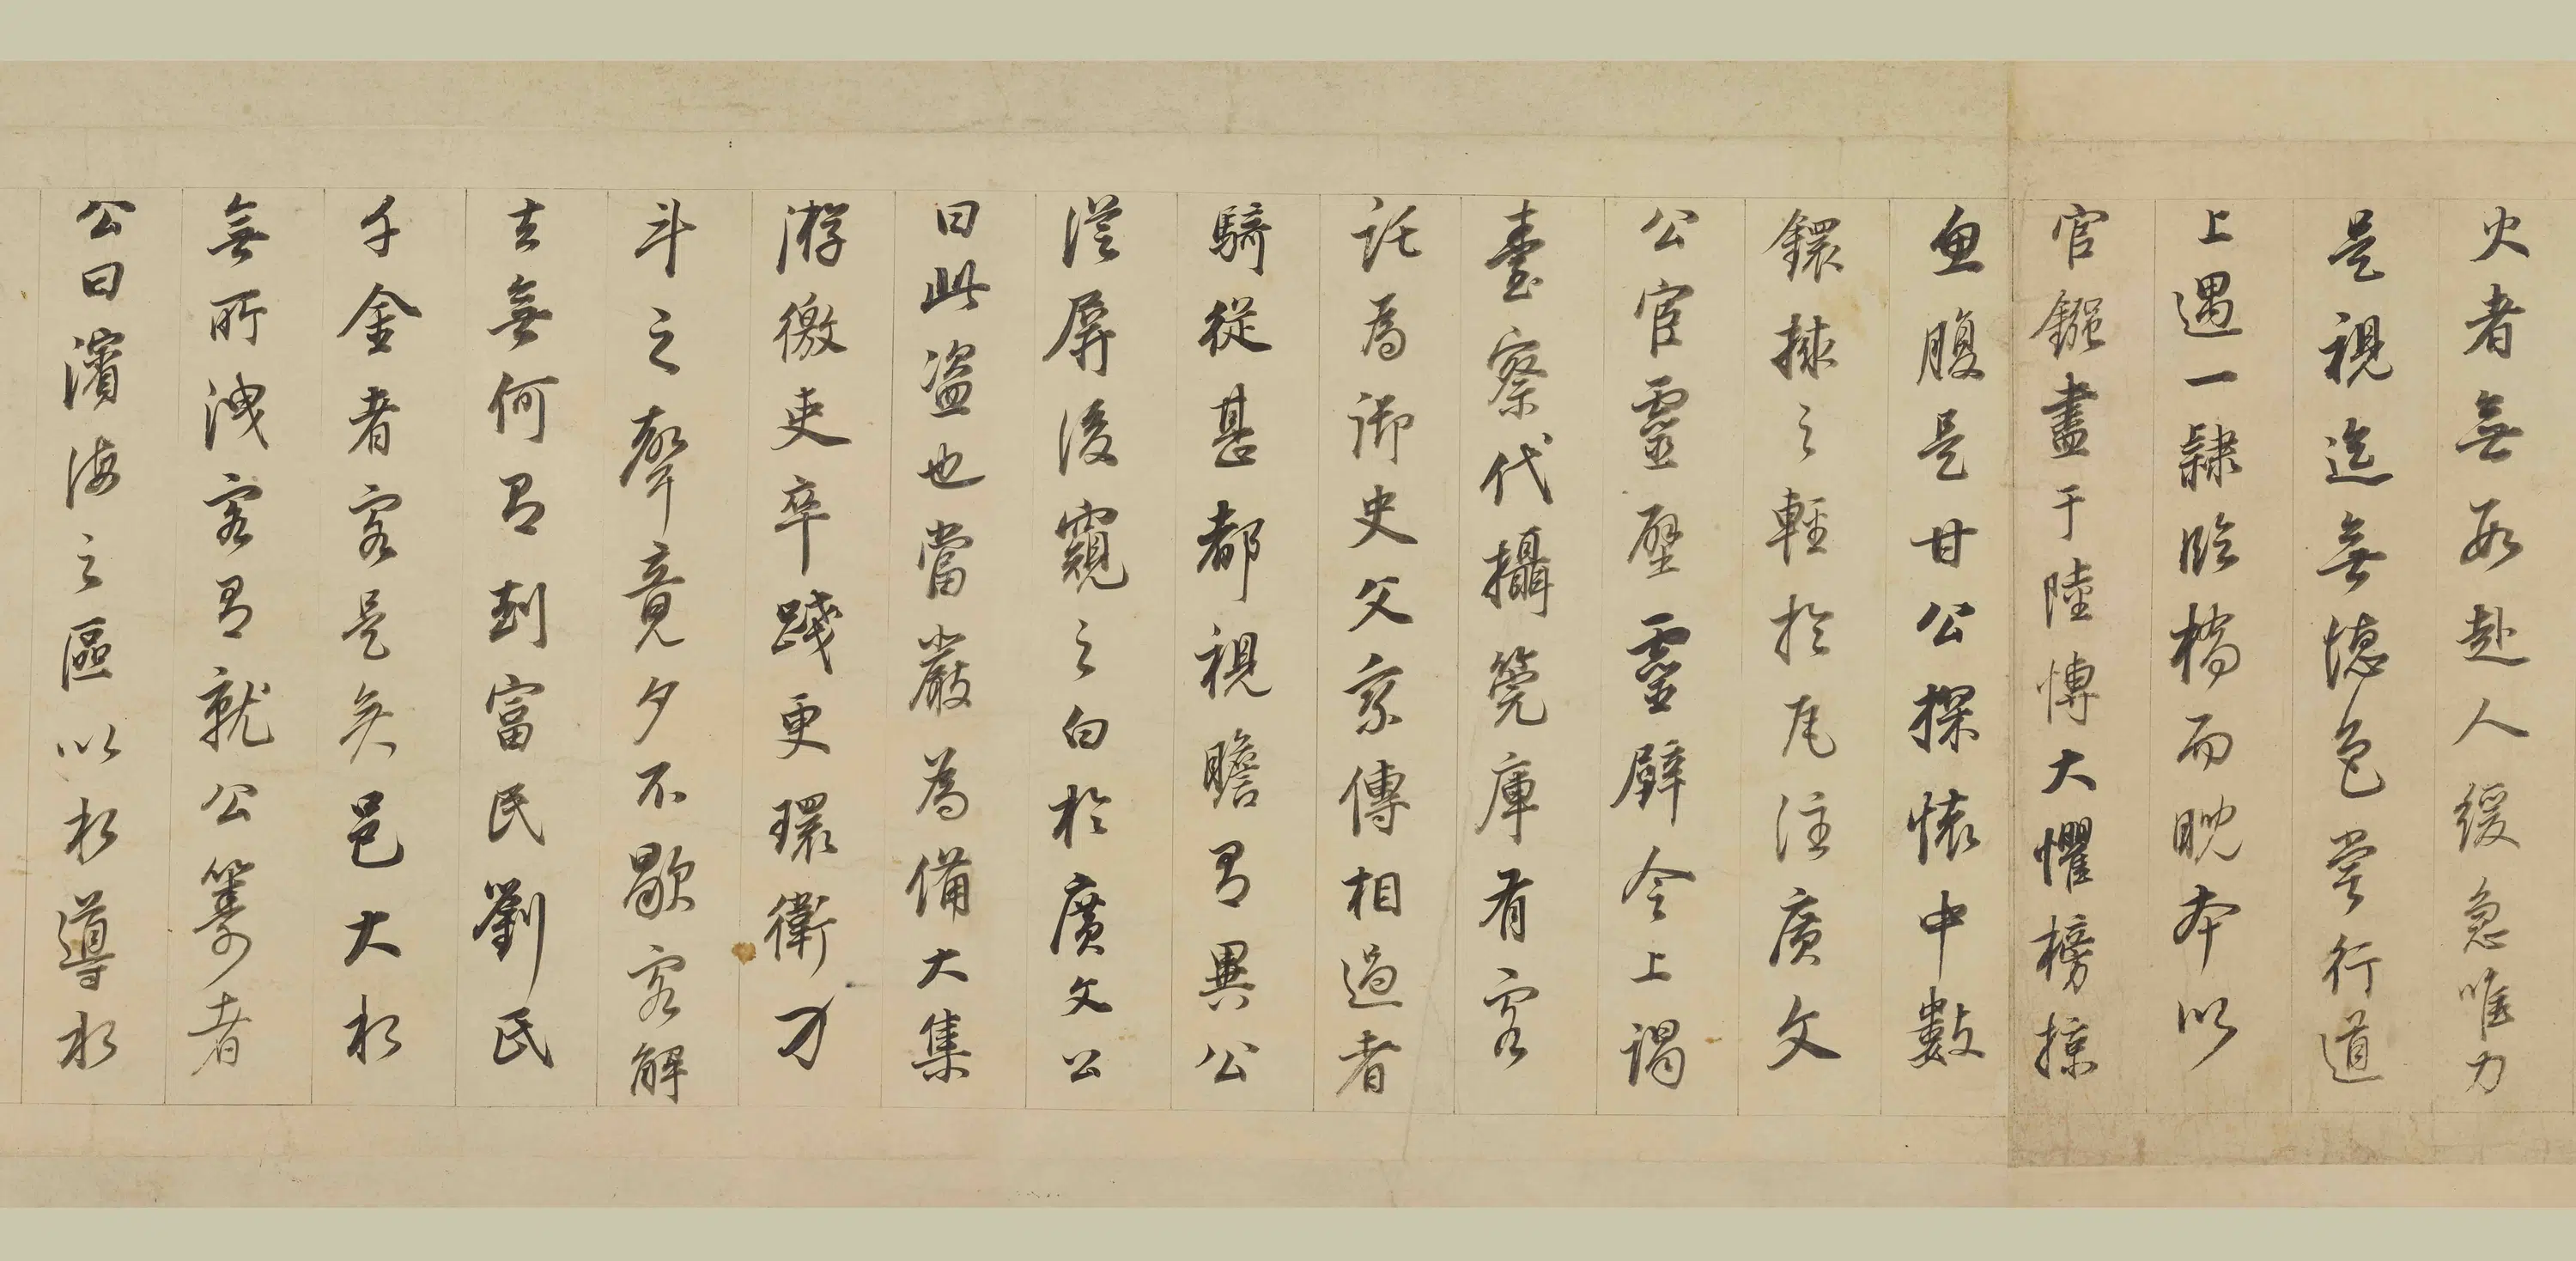 火者無以赴人緩急唯力
是視迄無德色嘗行道
上遇一隸臨橋而睨夲以
官鏹盡于陸博大懼榜掠
魚腹是甘公探懷中數
鐶捄之輕於瓦注廣文
公宦靈壁靈壁令上謁
臺察代攝筦庫有客
託為御史父家傳相過者
騎從甚都視瞻有異公
從屏後窺之白於廣文公
曰此盜也當嚴為備大集
游徼吏卒踐更環衛刀
斗之聲竟夕不歇客解
去無何有刲富民劉氏
千金者客是矣邑大水
無所洩客有就公籌者
公曰濱海之區以水導水